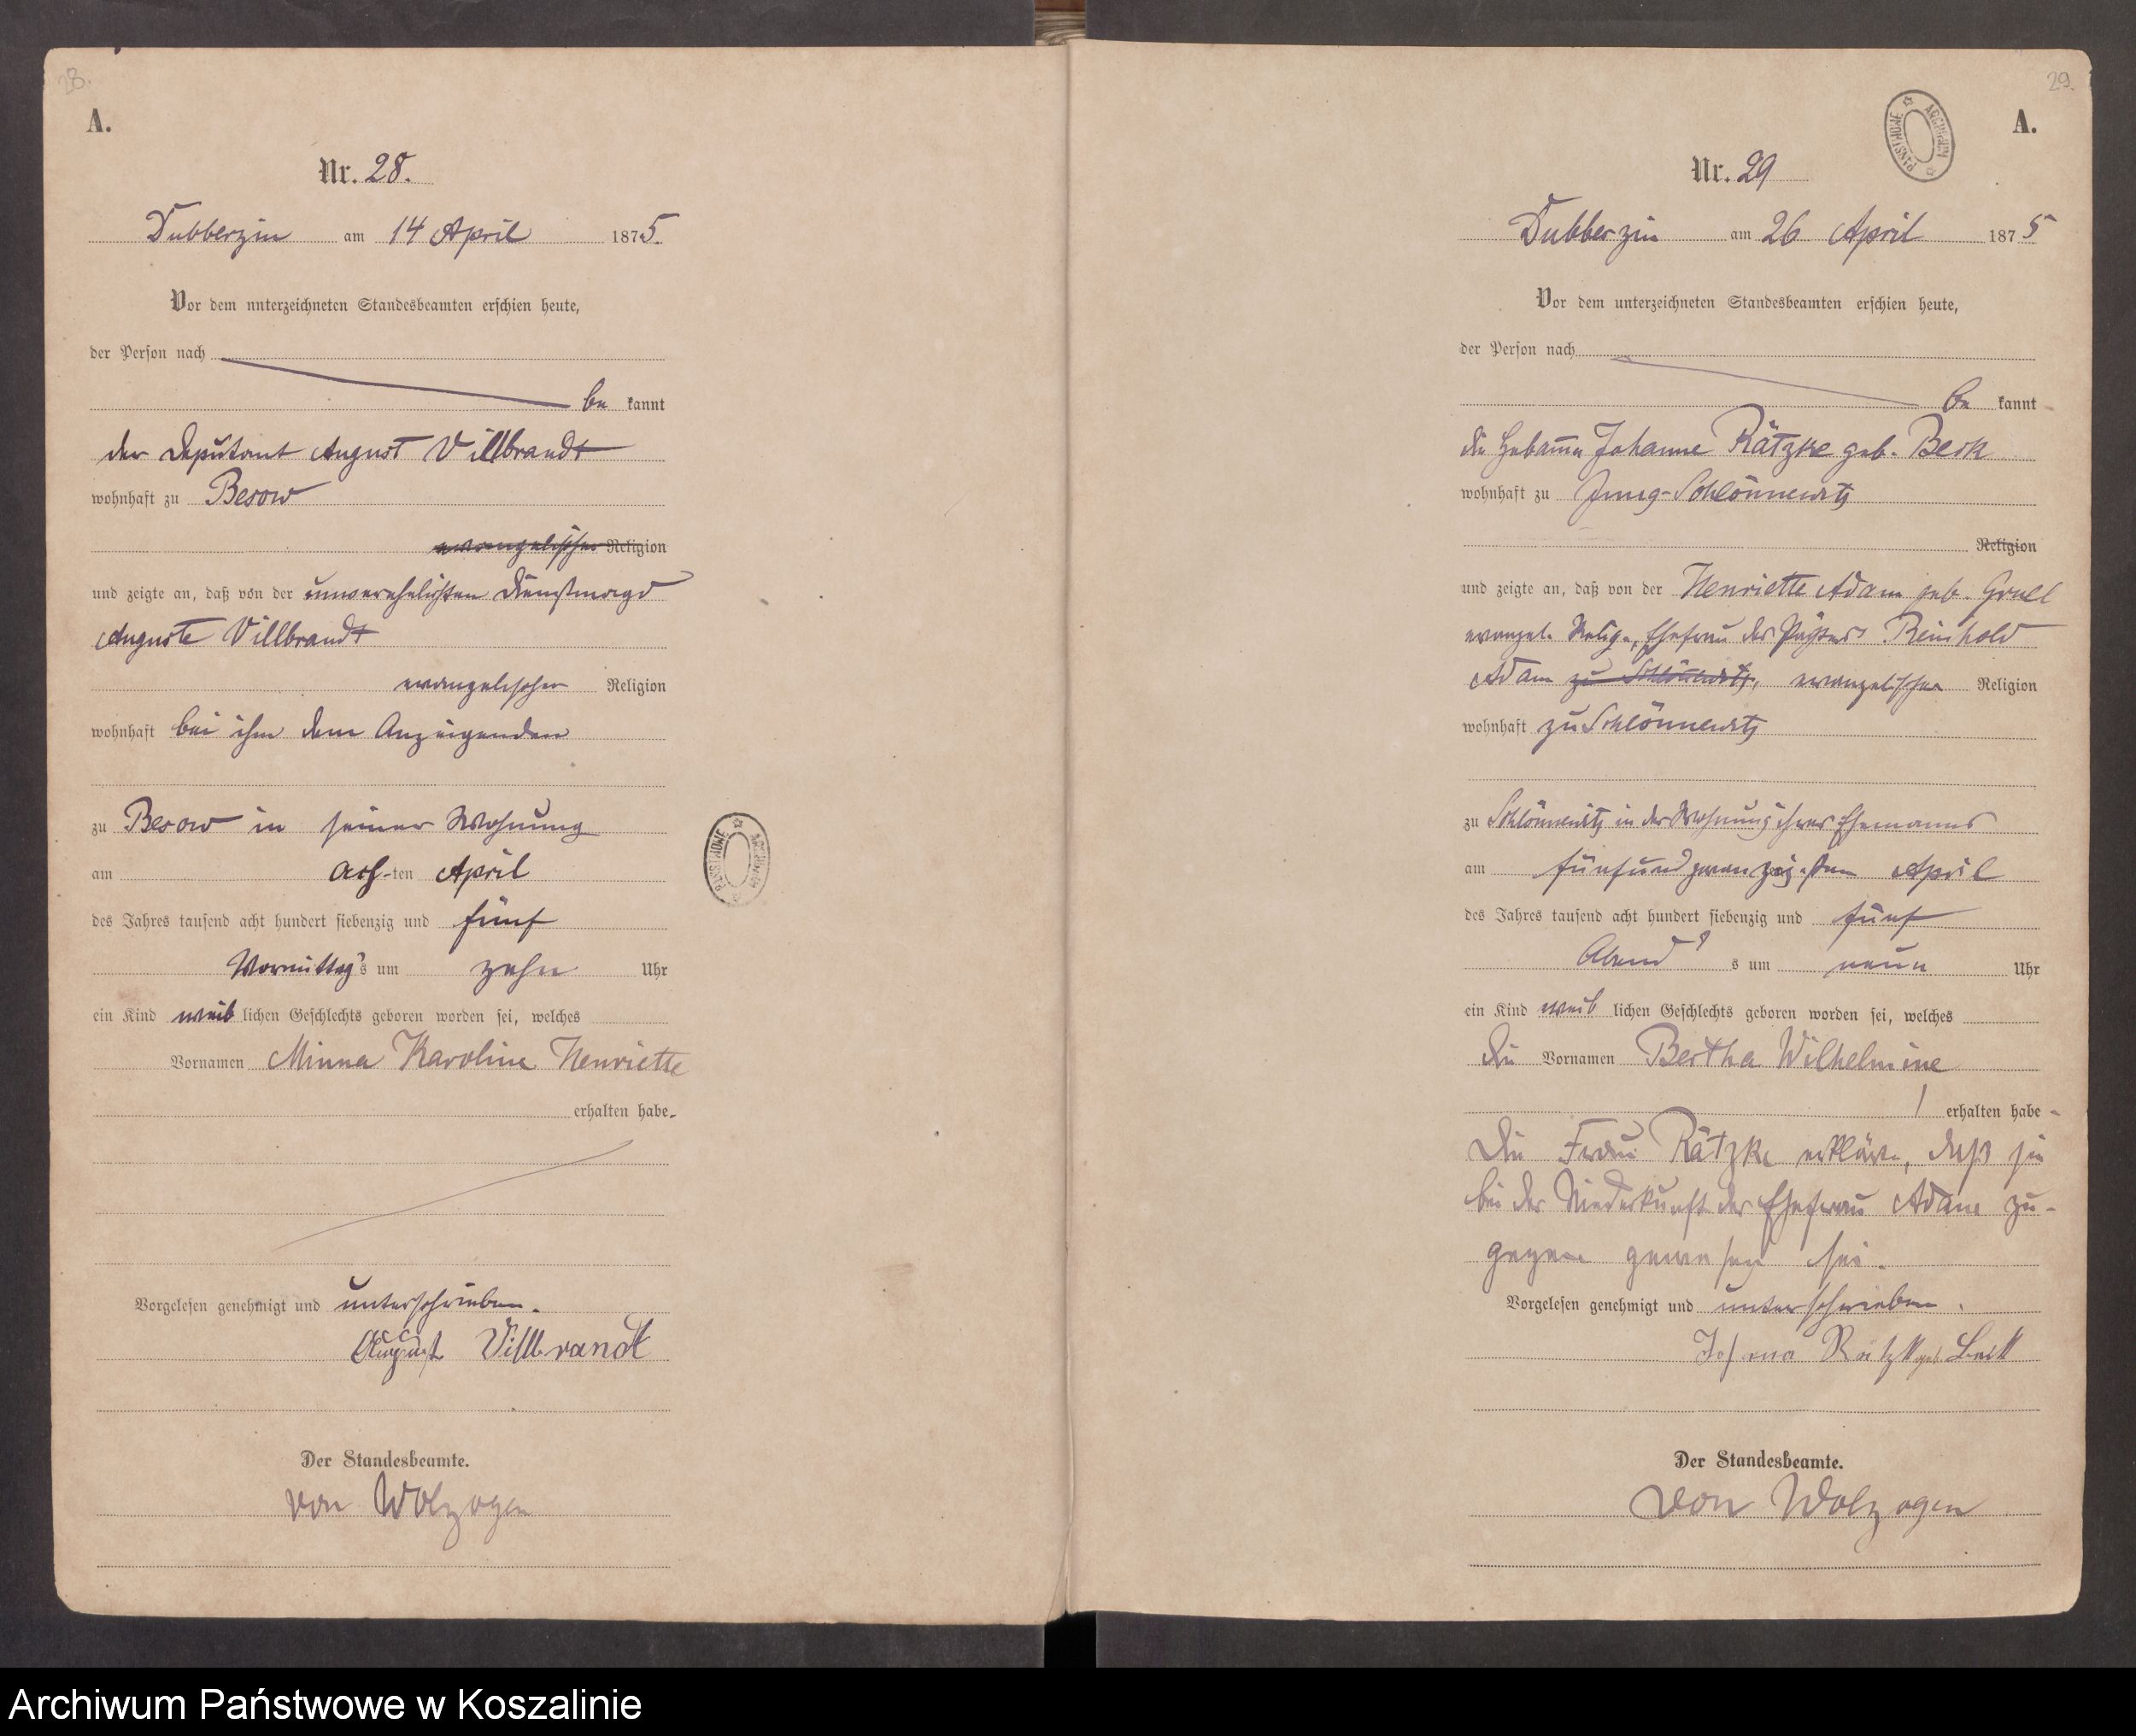 28.
A.
Nr. 28.
Dubberzin am 14 April 1875.
Vor dem unterzeichneten Standesbeamten erschien heute,
der Person nach
be kannt
der Deputant August Villbrandt
wohnhaft zu Besow
evangelischer Religion
und zeigte an, daß von der unverehelichten Dienstmagd
Auguste Villbrandt
evangelischer Religion
wohnhaft bei ihm dem Anzeigenden
zu Besow in seiner Wohnung
am ach-ten April
des Jahres tausend acht hundert siebenzig und fünf
Vormittag's um zehn Uhr
ein Kind weib lichen Geschlechts geboren worden sei, welches
Vornamen Minna Karoline Henriette
erhalten habe.
Vorgelesen genehmigt und unterschrieben.
August Villbrandt
Der Standesbeamte.
von Wolzogen
ARCHIWUM PAŃSTWOWE
29.
A.
ARCHIWUM PAŃSTWOWE
Nr. 29
Dubberzin am 26 April 1875
Vor dem unterzeichneten Standesbeamten erschien heute,
der Person nach
be kannt
die Hebamme Johanne Rätzke geb. Beck
wohnhaft zu Jung-Schlönnewitz
Religion
und zeigte an, daß von der Henriette Adam geb. Gruel
evangel. Relig., Ehefrau des Pächters Reinhold
Adam zu Schlönnewitz, evangelischer Religion
wohnhaft zu Schlönnewitz
zu Schlönnewitz in der Wohnung ihres Ehemanns
am fünfundzwanzigsten April
des Jahres tausend acht hundert siebenzig und fünf
Abend s um neun Uhr
ein Kind weib lichen Geschlechts geboren worden sei, welches
die Vornamen Bertha Wilhelmine
erhalten habe
Die Frau Rätzke erklärte, daß sie
bei der Niederkunft der Ehefrau Adam zu-
gegen gewesen sei.
Vorgelesen genehmigt und unterschrieben.
geb.
Der Standesbeamte.
von Wolzogen
Archiwum Państwowe w Koszalinie